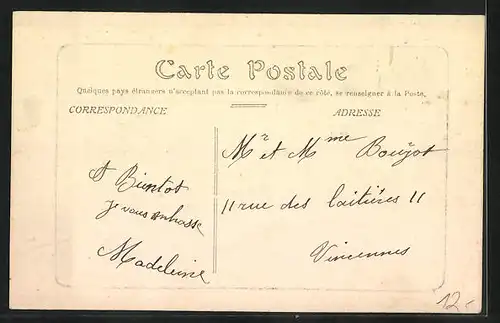 Carte Postale
Quelques pays étrangers n'acceptant pas la correspondance de ce côté, se renseigner à la Poste.
CORRESPONDANCE
ADRESSE
A Bientot
je vous embrasse
Madeleine
Mr et Mme Boujot
11 rue des laitières 11
Vincennes
12.-